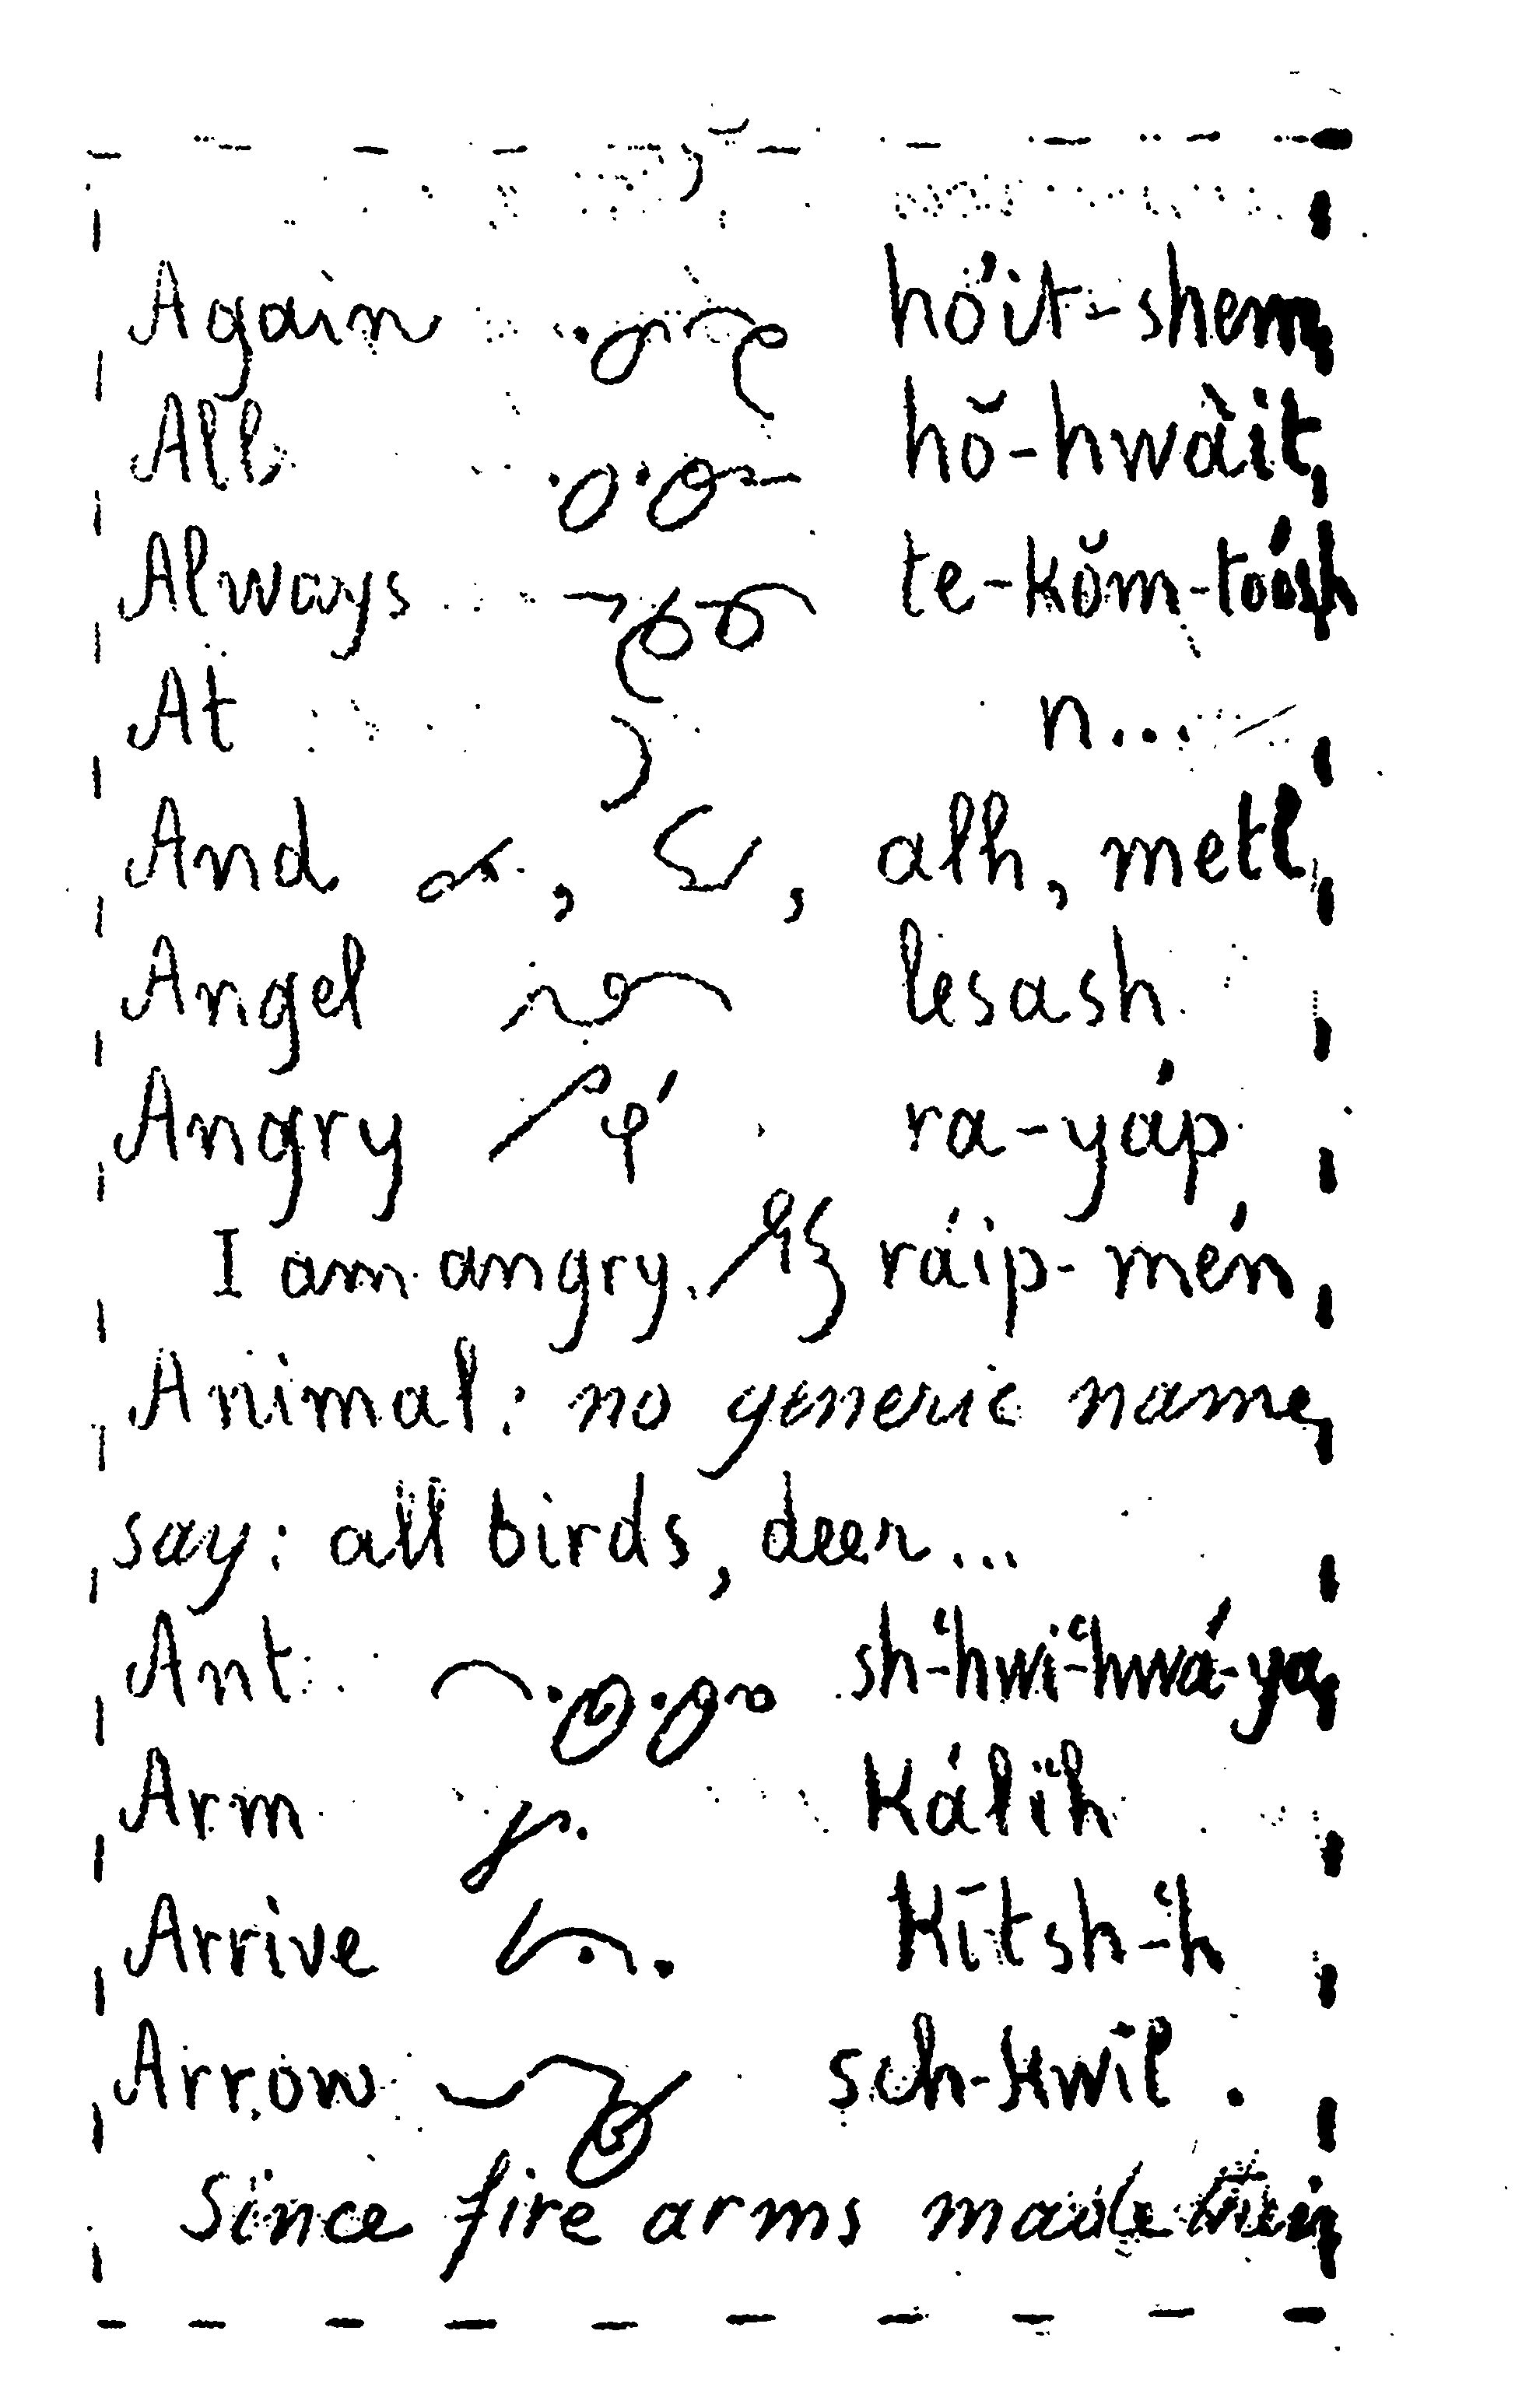 Again hóit-shem
All hŏ-hwàit
Always te-kŏm-toósh
At n...
And , , alh, metl
Angel lesash
Angry ra-yáp
I am angry. ráip-mén
Animal: no generic name
say: all birds, deer...
Ant sh-ʿhwi-ʿhwá-ya
Arm káliʿh
Arrive kītsh-ʿh
Arrow sch-kwīl.
Since fire arms made their